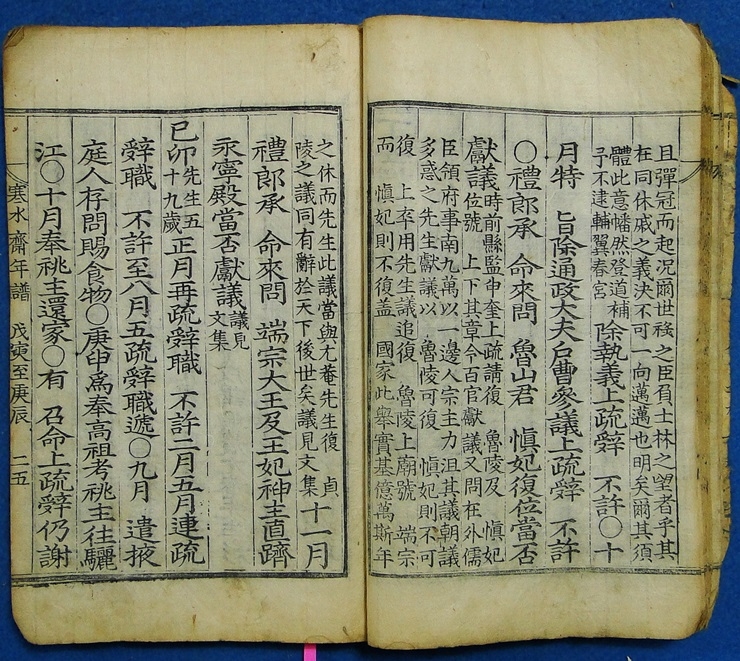 且彈冠而起况爾世祿之臣負士林之望者乎其
在同休戚之義決不可一向邁邁也明矣爾其須
體此意幡然登道補
子不逮輔翼春宮
除執義上疏辭 不許○十
月特 旨除通政大夫戶曹參議上疏辭 不許
○禮郎承 命來問 魯山君 愼妃復位當否
獻議
時前縣監申奎上疏請復 魯陵及 愼妃
位號 上下其章令百官獻議又問在外儒
臣領府事南九萬以一邊人宗主力沮其議朝議
多惑之先生獻議以 魯陵可復 愼妃則不可
復 上卒用先生議追復 魯陵上廟號 端宗
而 愼妃則不復盖 國家此舉實基億萬斯年
之休而先生此議當與尤菴先生復 貞
陵之議同有辭於天下後世矣議見文集
十一月
禮郎承 命來問 端宗大王及王妃神主直躋
永寧殿當否獻議
議見
文集
己卯
先生五
十九歲
正月再疏辭職 不許二月五月連疏
辭職 不許至八月五疏辭職遞○九月 遣掖
庭人存問賜食物○庚申爲奉高祖考祧主往驪
江○十月奉祧主還家○有 召命上疏辭仍謝
寒水齋年譜 戊寅至庚辰 二五